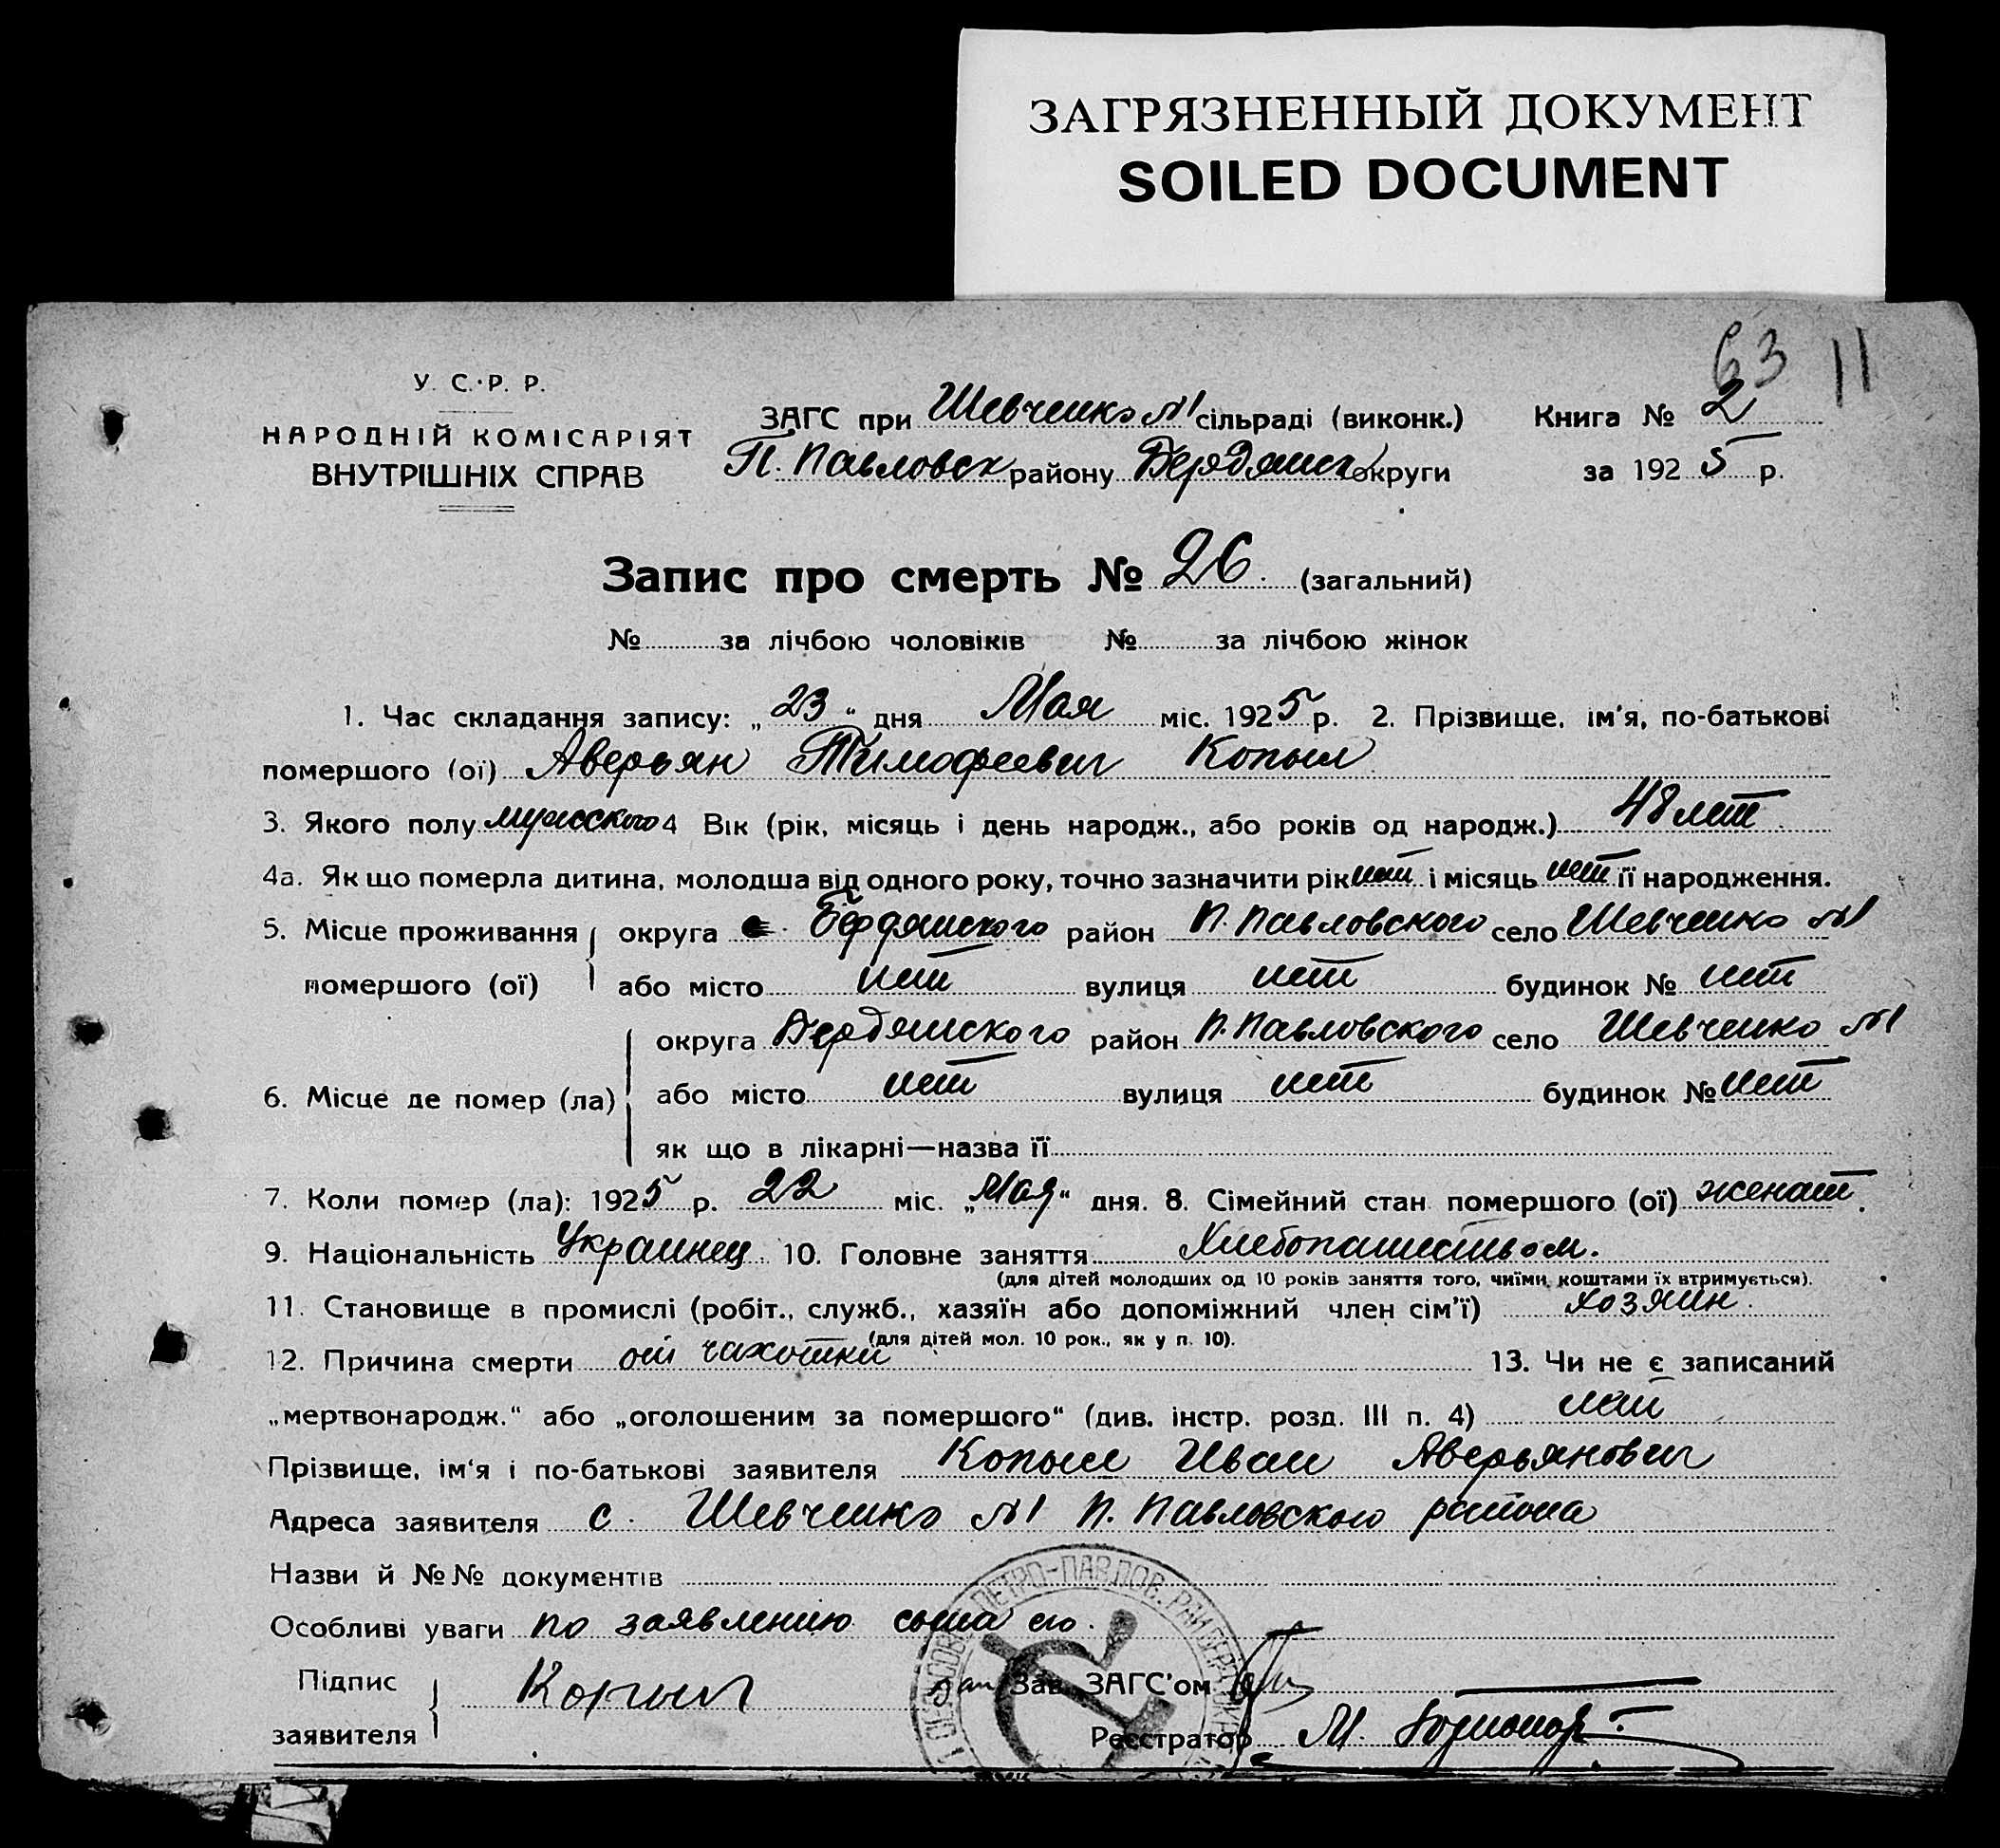 ЗАГРЯЗНЕННЫЙ ДОКУМЕНТ
SOILED DOCUMENT
63 11
У. С. Р. Р.
НАРОДНІЙ КОМІСАРІЯТ
ВНУТРІШНІХ СПРАВ
ЗАГС при Шевченко №1 сільраді (виконк.) Книга № 2
П. Павловск району Бердянск округи за 1925 р.
Запис про смерть № 26. (загальний)
№ за лічбою чоловіків № за лічбою жінок
1. Час складання запису: „23“ дня Мая міс. 1925 р. 2. Прізвище, ім'я, по-батькові
помершого (ої) Аверьян Тимофеевич Копыл
3. Якого полу мужского 4 Вік (рік, місяць і день народж., або років од народж.) 48 лет.
4а. Як що померла дитина, молодша від одного року, точно зазначити рік нет і місяць нет її народження.
5. Місце проживання округа Бердянского район П. Павловского село Шевченко №1
помершого (ої) або місто нет вулиця нет будинок № нет
округа Бердянского район П. Павловского село Шевченко №1
6. Місце де помер (ла) або місто нет вулиця нет будинок № нет
як що в лікарні—назва її
7. Коли помер (ла): 1925 р. 22 міс. „Мая“ дня. 8. Сімейний стан помершого (ої) женат.
9. Національність Украинец. 10. Головне заняття Хлебопашеством.
(для дітей молодших од 10 років заняття того, чиїми коштами їх втримується).
11. Становище в промислі (робіт., служб., хазяїн або допоміжний член сім'ї) хозяин.
(для дітей мол. 10 рок., як у п. 10).
12. Причина смерти от чахотки 13. Чи не є записаний
„мертвонародж.“ або „оголошеним за помершого“ (див. інстр. розд. III п. 4) нет
Прізвище, ім'я і по-батькові заявителя Копыл Иван Аверьянович
Адреса заявителя с. Шевченко №1 П. Павловского района
Назви й №№ документів
Особливі уваги по заявлению сына его.
Підпис заявителя Копыл
Зав. ЗАГС'ом
Реєстратор М.
ПЕТРО-ПАВЛОВ. РАЙ